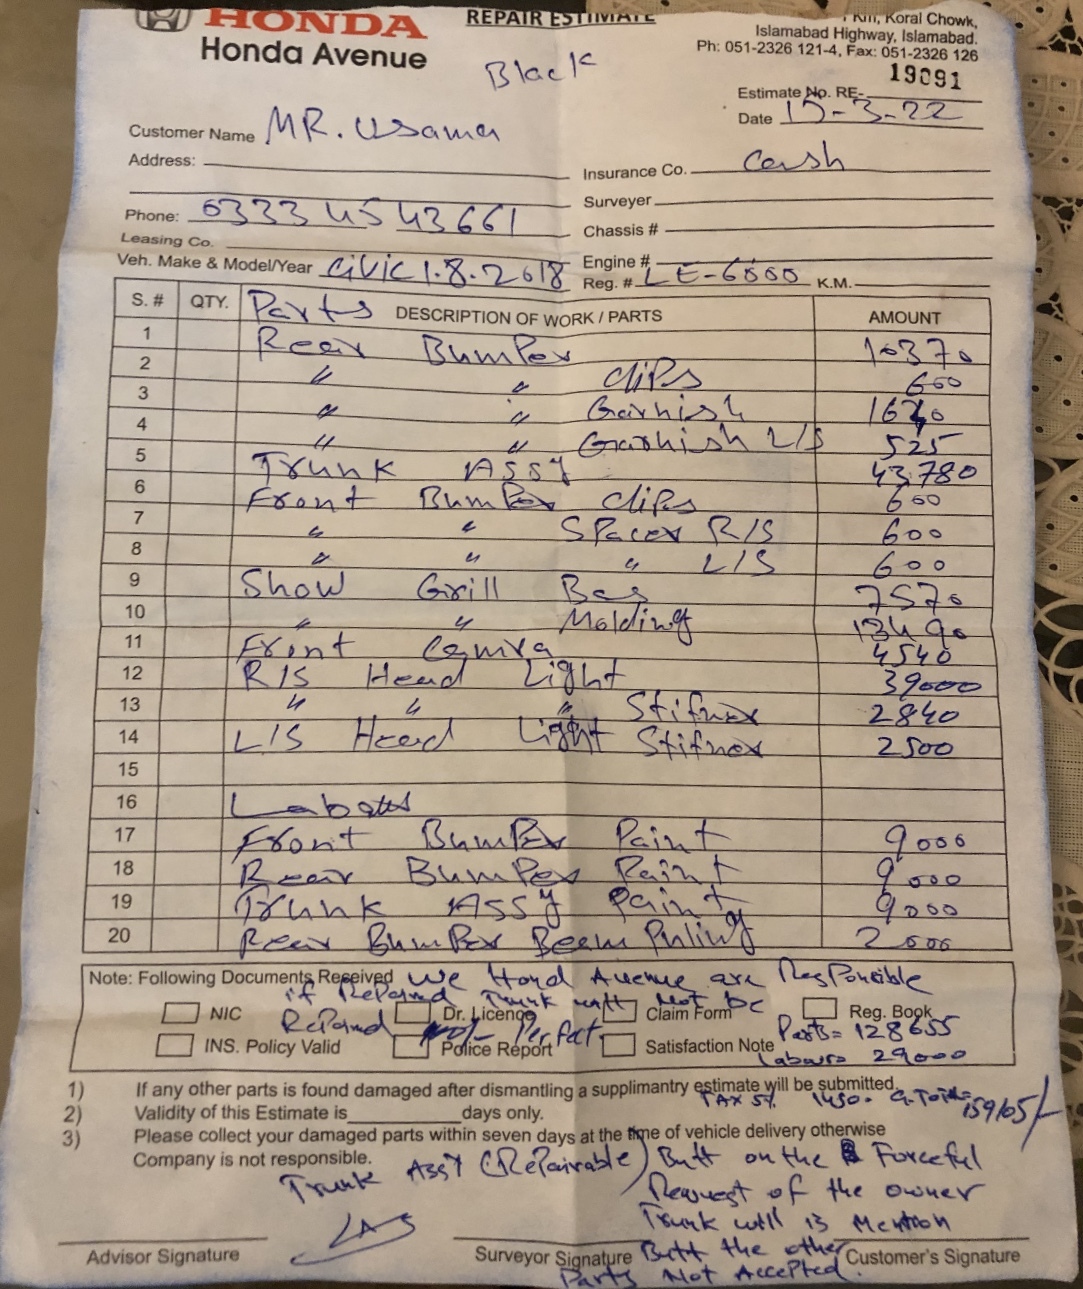 HONDA
REPAIR ESTIMATE
Koral Chowk,
Honda Avenue
Islamabad Highway, Islamabad.
Ph: 051-2326 121-4, Fax: 051-2326 126
Black
19091
Estimate No. RE-
Date 15-3-22
Customer Name MR. Usama
Address:
Insurance Co. Cash
Surveyor
Phone: 0333 45 43661
Chassis #
Leasing Co.
Engine #
Veh. Make & Model/Year Civic 1.8.2018
Reg. # LE-6000 K.M.
S. # QTY. Parts DESCRIPTION OF WORK / PARTS AMOUNT
1 Rear Bumper 10370
2 〃 〃 Clips 600
3 〃 〃 Garnish 1640
4 〃 〃 Garnish L/S 525
5 Trunk ASSY 43780
6 Front Bumper Clips 600
7 〃 〃 Spacer R/S 600
8 〃 〃 〃 L/S 600
9 Show Grill Bas 7570
10 〃 〃 Molding 13490
11 Front Camra 4540
12 R/S Head Light 39000
13 〃 〃 〃 Stifnor 2840
14 L/S Head Light Stifnor 2500
15
16
17 Front Bumper Paint 9000
18 Rear Bumper Paint 9000
19 Trunk ASSY Paint 9000
20 Rear Bumper Beem Puling 2000
Note: Following Documents Received We Hond Avenue are Responsible
if Repaird Trunk Not be
NIC Dr. Licence Claim Form Reg. Book
Repaird Perfect. Parts= 128655
INS. Policy Valid Police Report Satisfaction Note
Labour= 29000
1) If any other parts is found damaged after dismantling a supplimantry estimate will be submitted.
TAX 5% 1450. G.Total= 159105/-
2) Validity of this Estimate is days only.
3) Please collect your damaged parts within seven days at the time of vehicle delivery otherwise
Company is not responsible.
Trunk ASSY (Repairable) Butt on the Forceful
Request of the owner
Trunk will is Mention
Butt the other
Parts Not Accepted.
Advisor Signature Surveyor Signature Customer's Signature